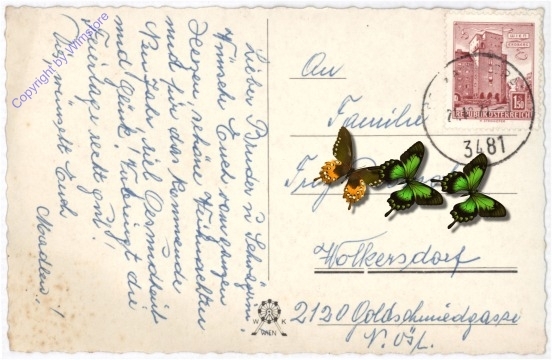 Lieber Bruder u. Schwägerin!
Wünsche Euch von ganzen
Herzen, schöne Weihnachten
und für das kommende
Neujahr viel Gesundheit
und Glück! Verbringt die
Feiertage recht gut!
Das wünscht Euch
An
Familie
Wolkersdorf
2120 Goldschmiedgasse
N.Öst.
WIEN
REPUBLIK ÖSTERREICH
1.50
3481
W K
WIEN
Copyright by Wimstore